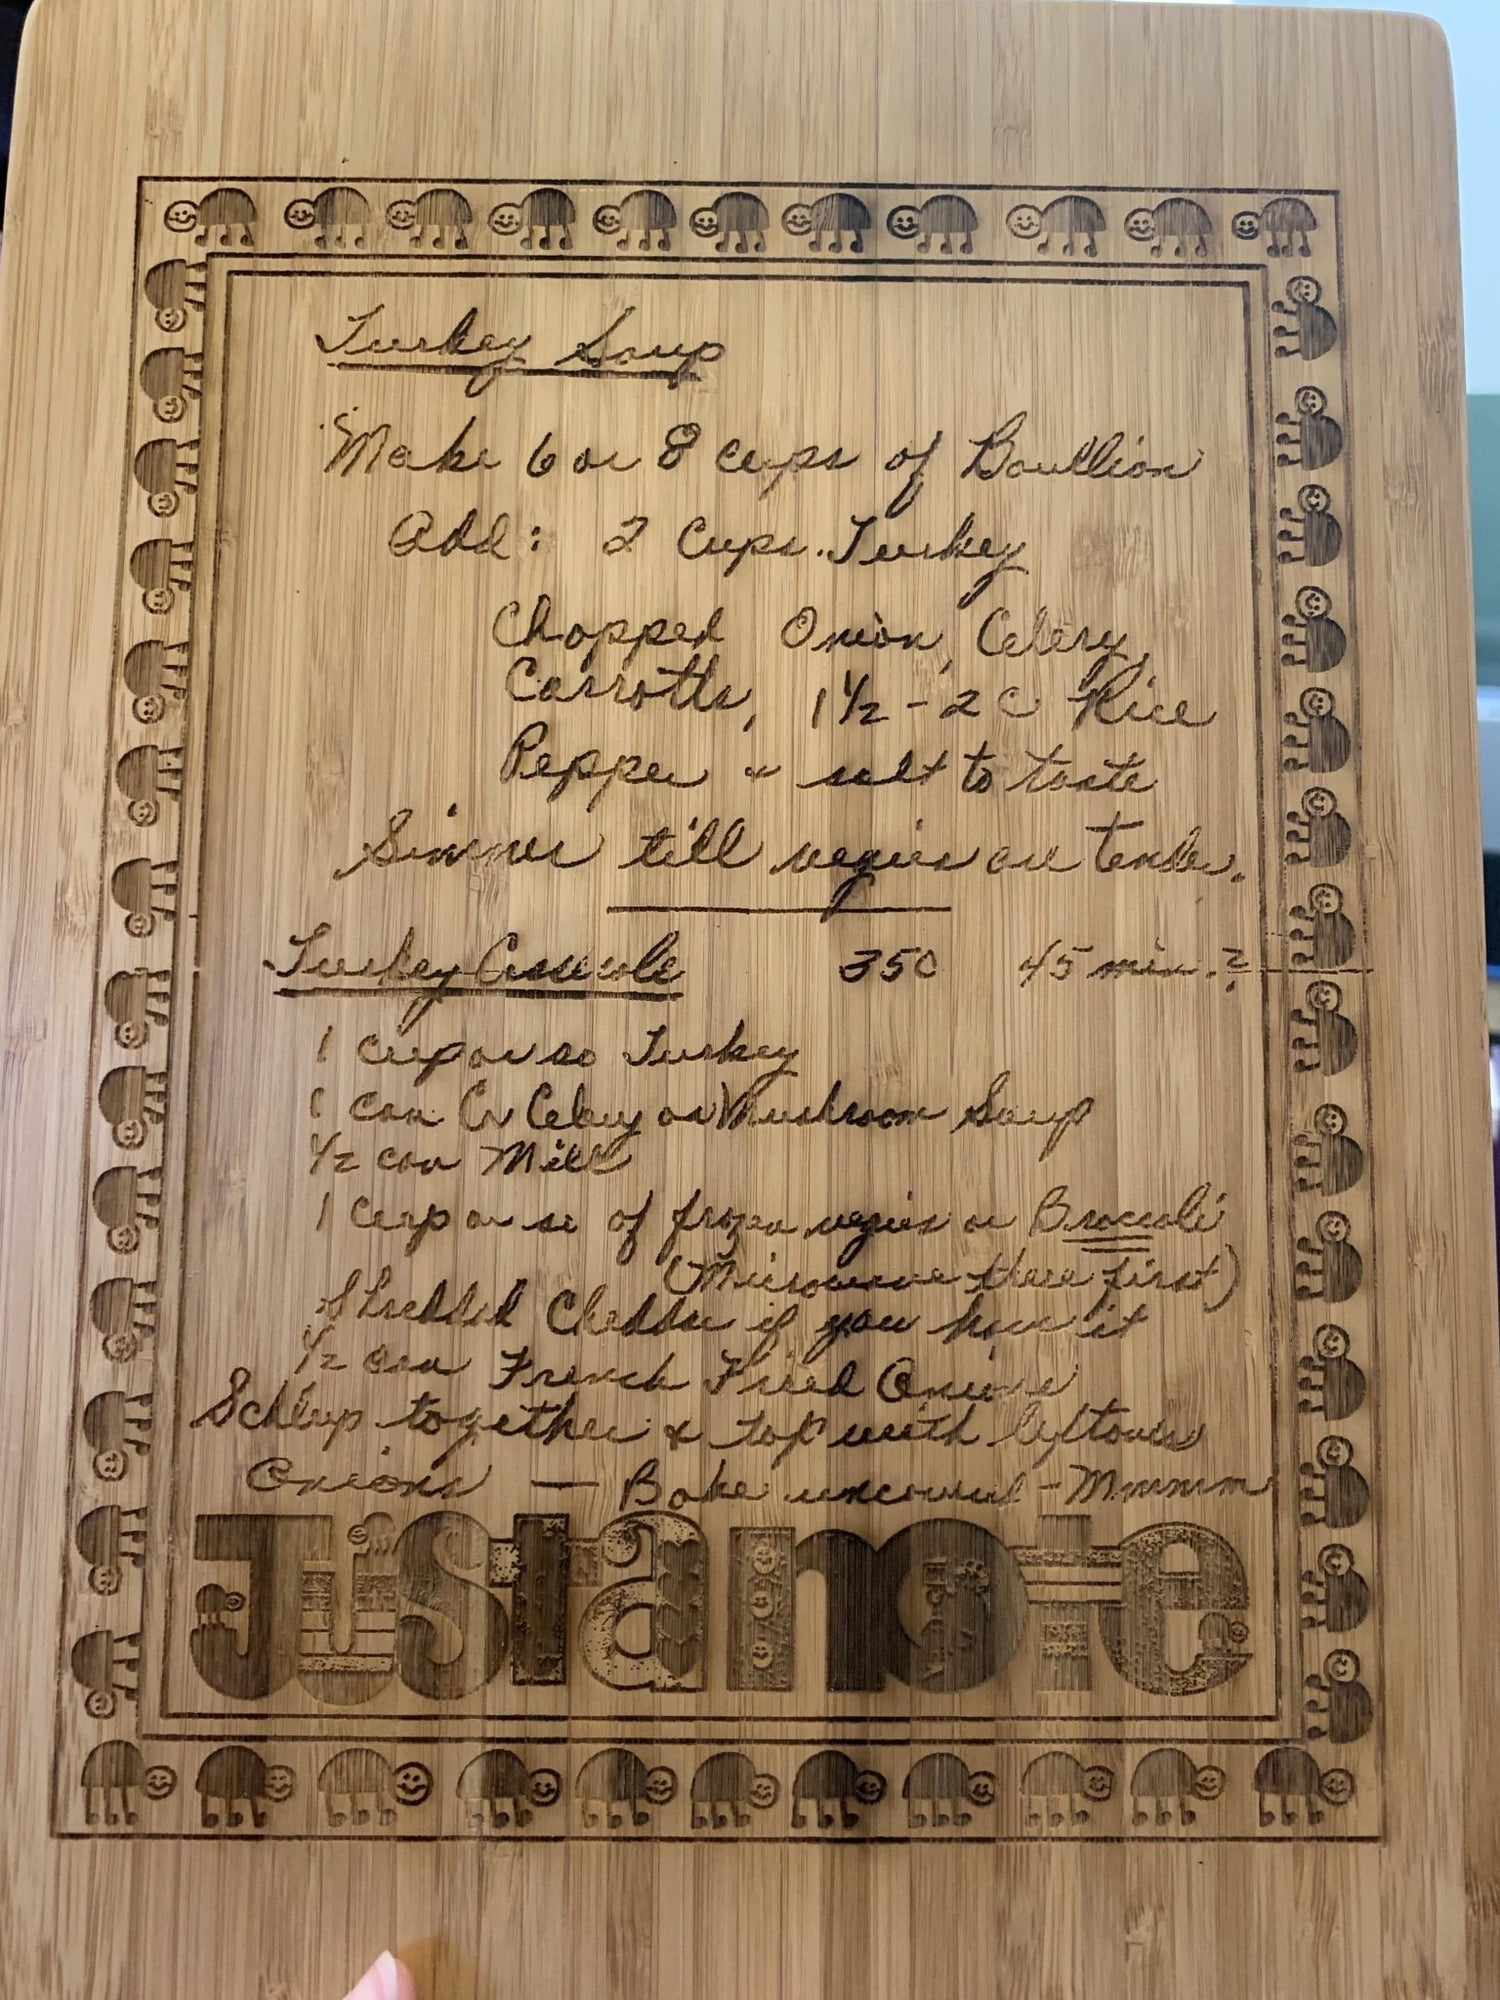 Turkey Soup
Make 6 or 8 cups of Boullion
Add: 2 Cups Turkey
Chopped Onion, Celery,
Carrotts, 1 1/2 - 2 C Rice
Pepper & salt to taste
Simmer till vegies are tender.
Turkey Casserole 350 45 min.?
1 cup or so Turkey
1 can Cr Celery or Mushroom Soup
1/2 can Milk
1 Cup or so of frozen vegies or Broccoli
(Microwave these first)
Shredded Cheddar if you have it
1/2 can French Fried Onions
Schlup together & top with leftover
Onions — Bake uncovered - Mmmmm
Just a note